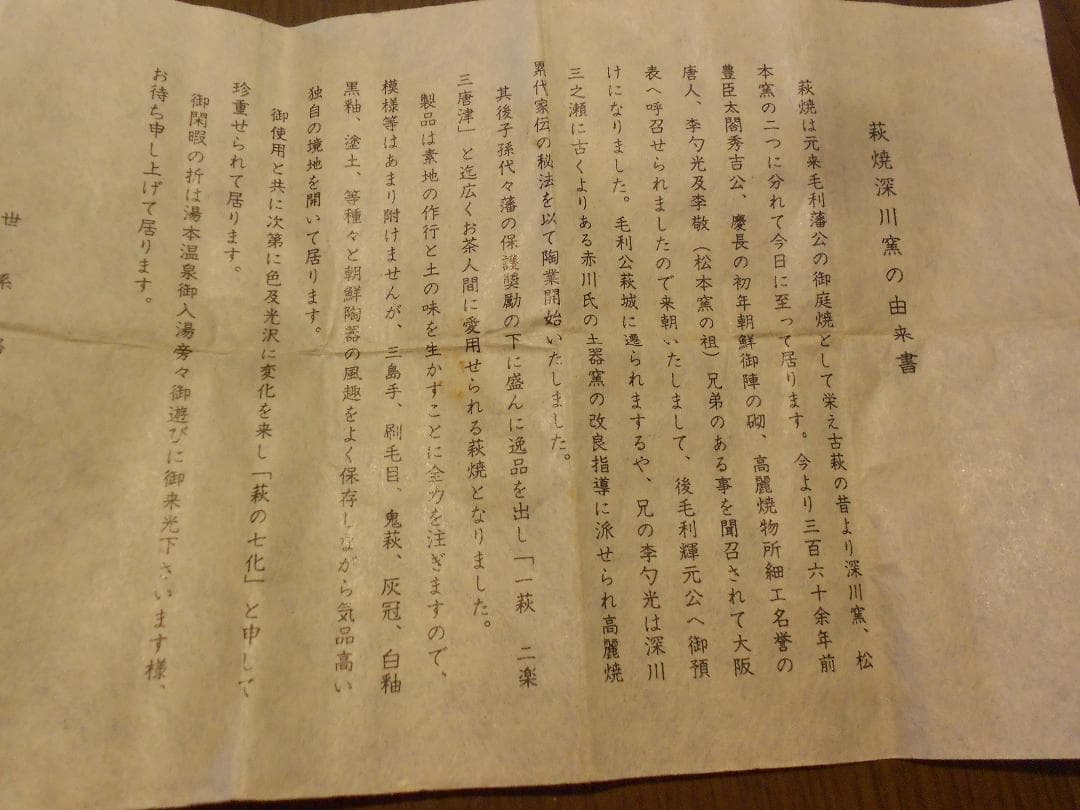 萩焼深川窯の由来書
萩焼は元来毛利藩公の御庭焼として栄え古萩の昔より深川窯、松
本窯の二つに分れて今日に至って居ります。今より三百六十余年前
豊臣太閤秀吉公、慶長の初年朝鮮御陣の砌、高麗焼物所細工名誉の
唐人、李勺光及李敬（松本窯の祖）兄弟のある事を聞召されて大阪
表へ呼召せられましたので来朝いたしまして、後毛利輝元公へ御預
けになりました。毛利公萩城に遷られまするや、兄の李勺光は深川
三之瀬に古くよりある赤川氏の土器窯の改良指導に派せられ高麗焼
累代家伝の秘法を以て陶業開始いたしました。
其後子孫代々藩の保護奨励の下に盛んに逸品を出し「一萩　二楽
三唐津」と迄広くお茶人間に愛用せられる萩焼となりました。
製品は素地の作行と土の味を生かすことに全力を注ぎますので、
模様等はあまり附けませんが、三島手、刷毛目、鬼萩、灰冠、白釉
黒釉、塗土、等種々と朝鮮陶器の風趣をよく保存しながら気品高い
独自の境地を開いて居ります。
御使用と共に次第に色及光沢に変化を来し「萩の七化」と申して
珍重せられて居ります。
御閑暇の折は湯本温泉御入湯旁々御遊びに御来光下さいます様、
お待ち申し上げて居ります。
世系